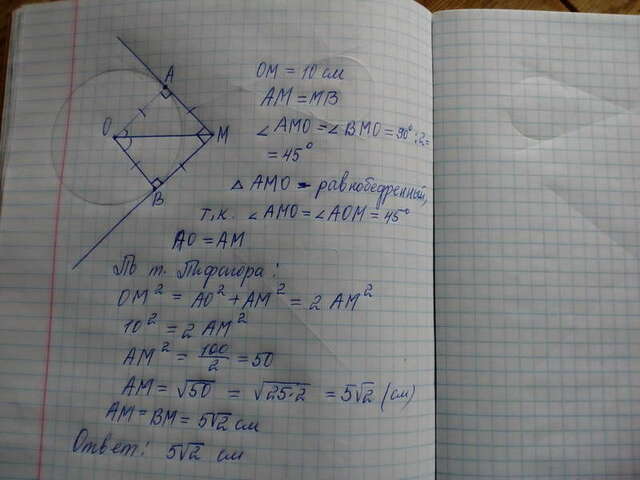 A
O
M
B
OM = 10 см
AM = MB
∠AMO = ∠BMO = 90° : 2 =
= 45°
△ AMO - равнобедренный,
т.к. ∠AMO = ∠AOM = 45°
AO = AM
По т. Пифагора:
OM² = AO² + AM² = 2 AM²
10² = 2 AM²
AM² = 100/2 = 50
AM = √50 = √25·2 = 5√2 (см)
AM = BM = 5√2 см
Ответ: 5√2 см